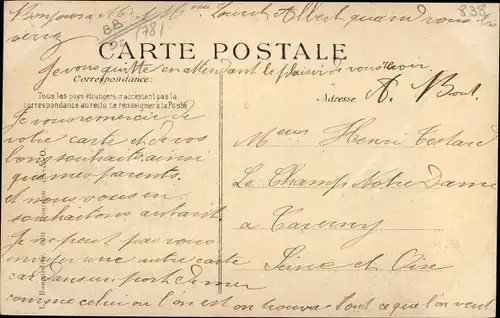 Bonjour à M. & Mme Laurent Albert quand vous
verrez
BB
95
(78)
833
CARTE POSTALE
Je vous quitte en attendant le plaisir de vous revoir
Correspondance:
A. Bout
Tous les pays étrangers n'acceptent pas la
correspondance au recto, se renseigner à la Poste
Adresse
Je vous remercie de
votre carte et de vos
bons souhaits, ainsi
que mes parents,
et nous vous en
souhaitons autant
Je ne peut pas vous
envoyer une autre carte
car dans un port de mer
comme celui où l'on est on trouve tout ce que l'on veut
Meur Henri Testard
Le Champ Notre Dame
à Taverny
Seine et Oise